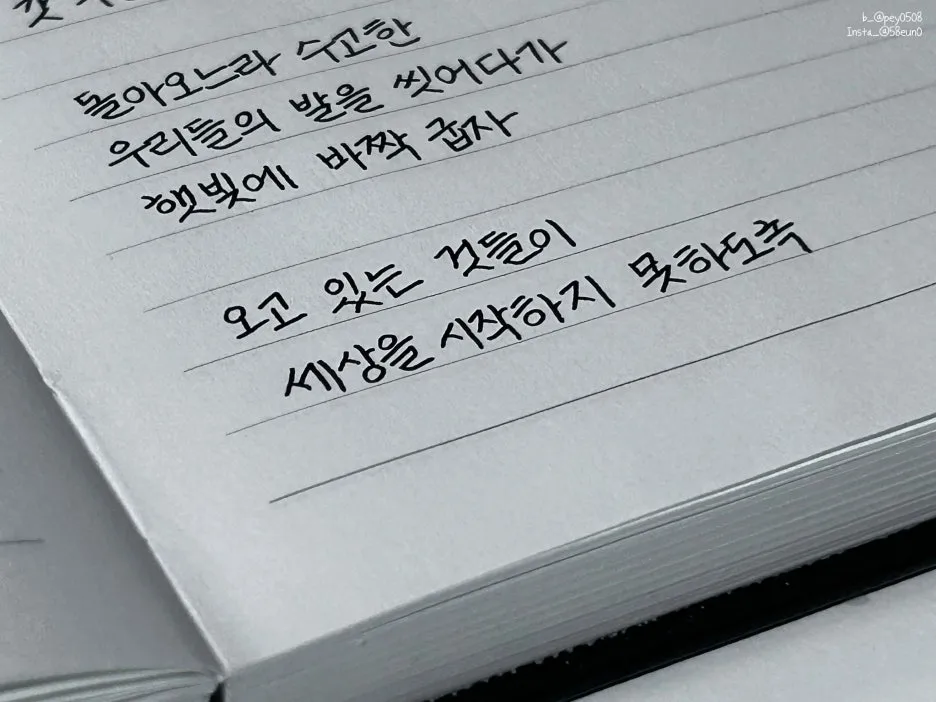 b_@pey0508
Insta_@58eun0
돌아오느라 수고한
우리들의 발을 씻어다가
햇빛에 바짝 굽자
오고 있는 것들이
세상을 시작하지 못하도록